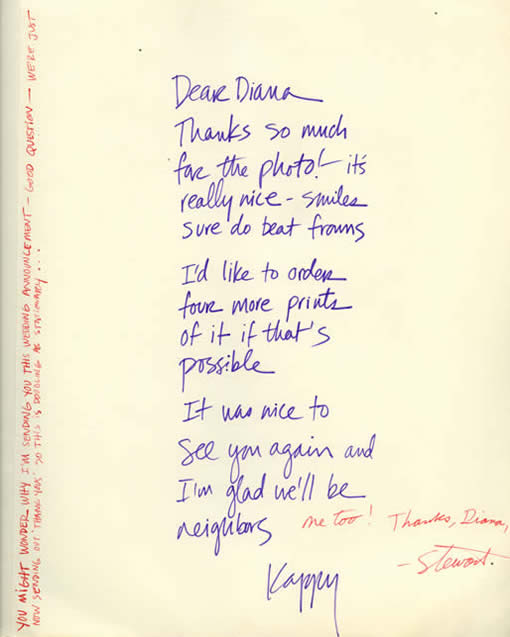 Dear Diana
Thanks so much
for the photo! – it's
really nice – smiles
sure do beat frowns
I'd like to order
four more prints
of it if that's
possible
It was nice to
see you again and
I'm glad we'll be
neighbors
Kappy
me too! Thanks, Diana,
– Stewart.
YOU MIGHT WONDER WHY I'M SENDING YOU THIS WEDDING ANNOUNCEMENT – GOOD QUESTION – WE'RE JUST
NOW SENDING OUT 'THANK YOUS' SO THIS IS DOUBLING AS STATIONARY . . .